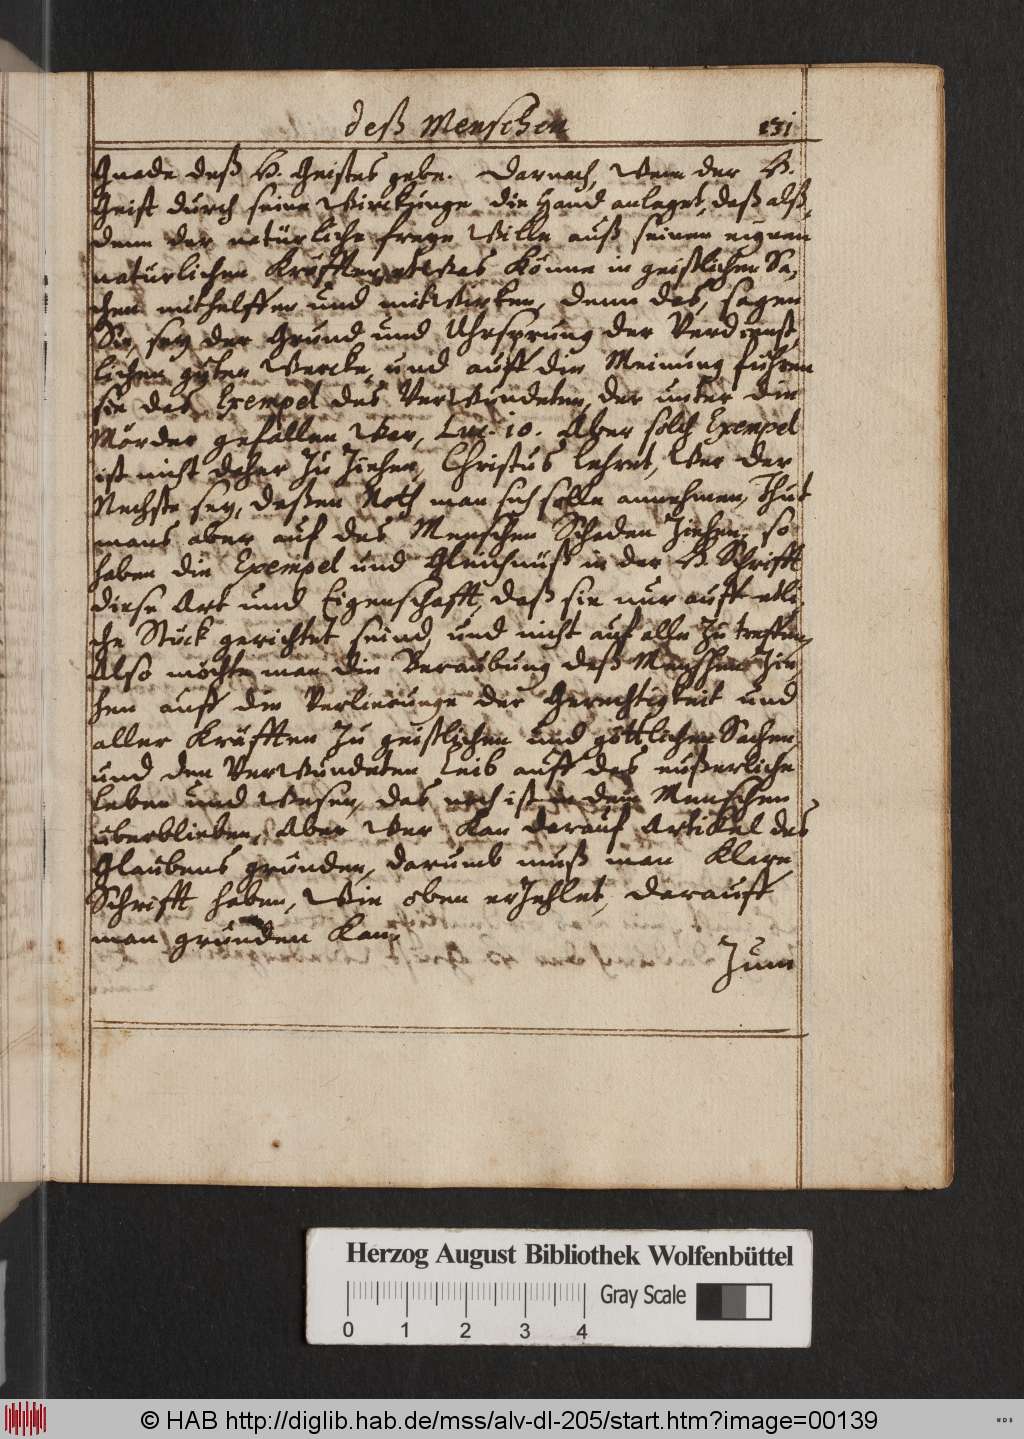 deß Menschen
131
Gnade deß H. Geistes gebe. Darnach, Wenn der H.
Geist durch seine Wirckunge die Hand anleget, daß alß,
denn der natürliche freye Wille auß seinen eignen
natürlichen Kräfften etWas könne in geistlichen Sa,
chen mithelffen und mitWirken, denn das, sagen
Sie, sey der Grund und Uhrsprung der Verdienst,
lichen guten Wercke, und auff die Meinung führen
sie das Exempel des VerWundeten, der unter die
Mörder gefallen War, Luc. 10. Aber solch Exempel
ist nicht daher zu ziehen, Christus lehret, Wer der
Nechste sey, deßen Noth man sich solle annehmen, Thut
mans aber auf des Menschen Schaden ziehen, so
haben die Exempel und Gleichnüß in der H. Schrifft
diese Art und Eigenschafft, daß sie nur auff etli
che Stück gerichtet seind, und nicht auf alle zu treffen,
Also möchte man die Beraubung deß Menschen zie
hen auff die Verlierunge der Gerechtigkeit und
aller Kräfften zu geistlichen und göttlichen Sachen
und den VerWundeten Leib auff das eußerliche
Leben und Wesen, das noch ist in dem Menschen
überblieben, Aber Wer kan darauf Artikel des
Glaubens gründen, darumb muß man klare
Schrifft haben, Wie oben erzehlet, darauff
man gründen kan.
Zum
Herzog August Bibliothek Wolfenbüttel
Gray Scale
0 1 2 3 4
© HAB http://diglib.hab.de/mss/alv-dl-205/start.htm?image=00139